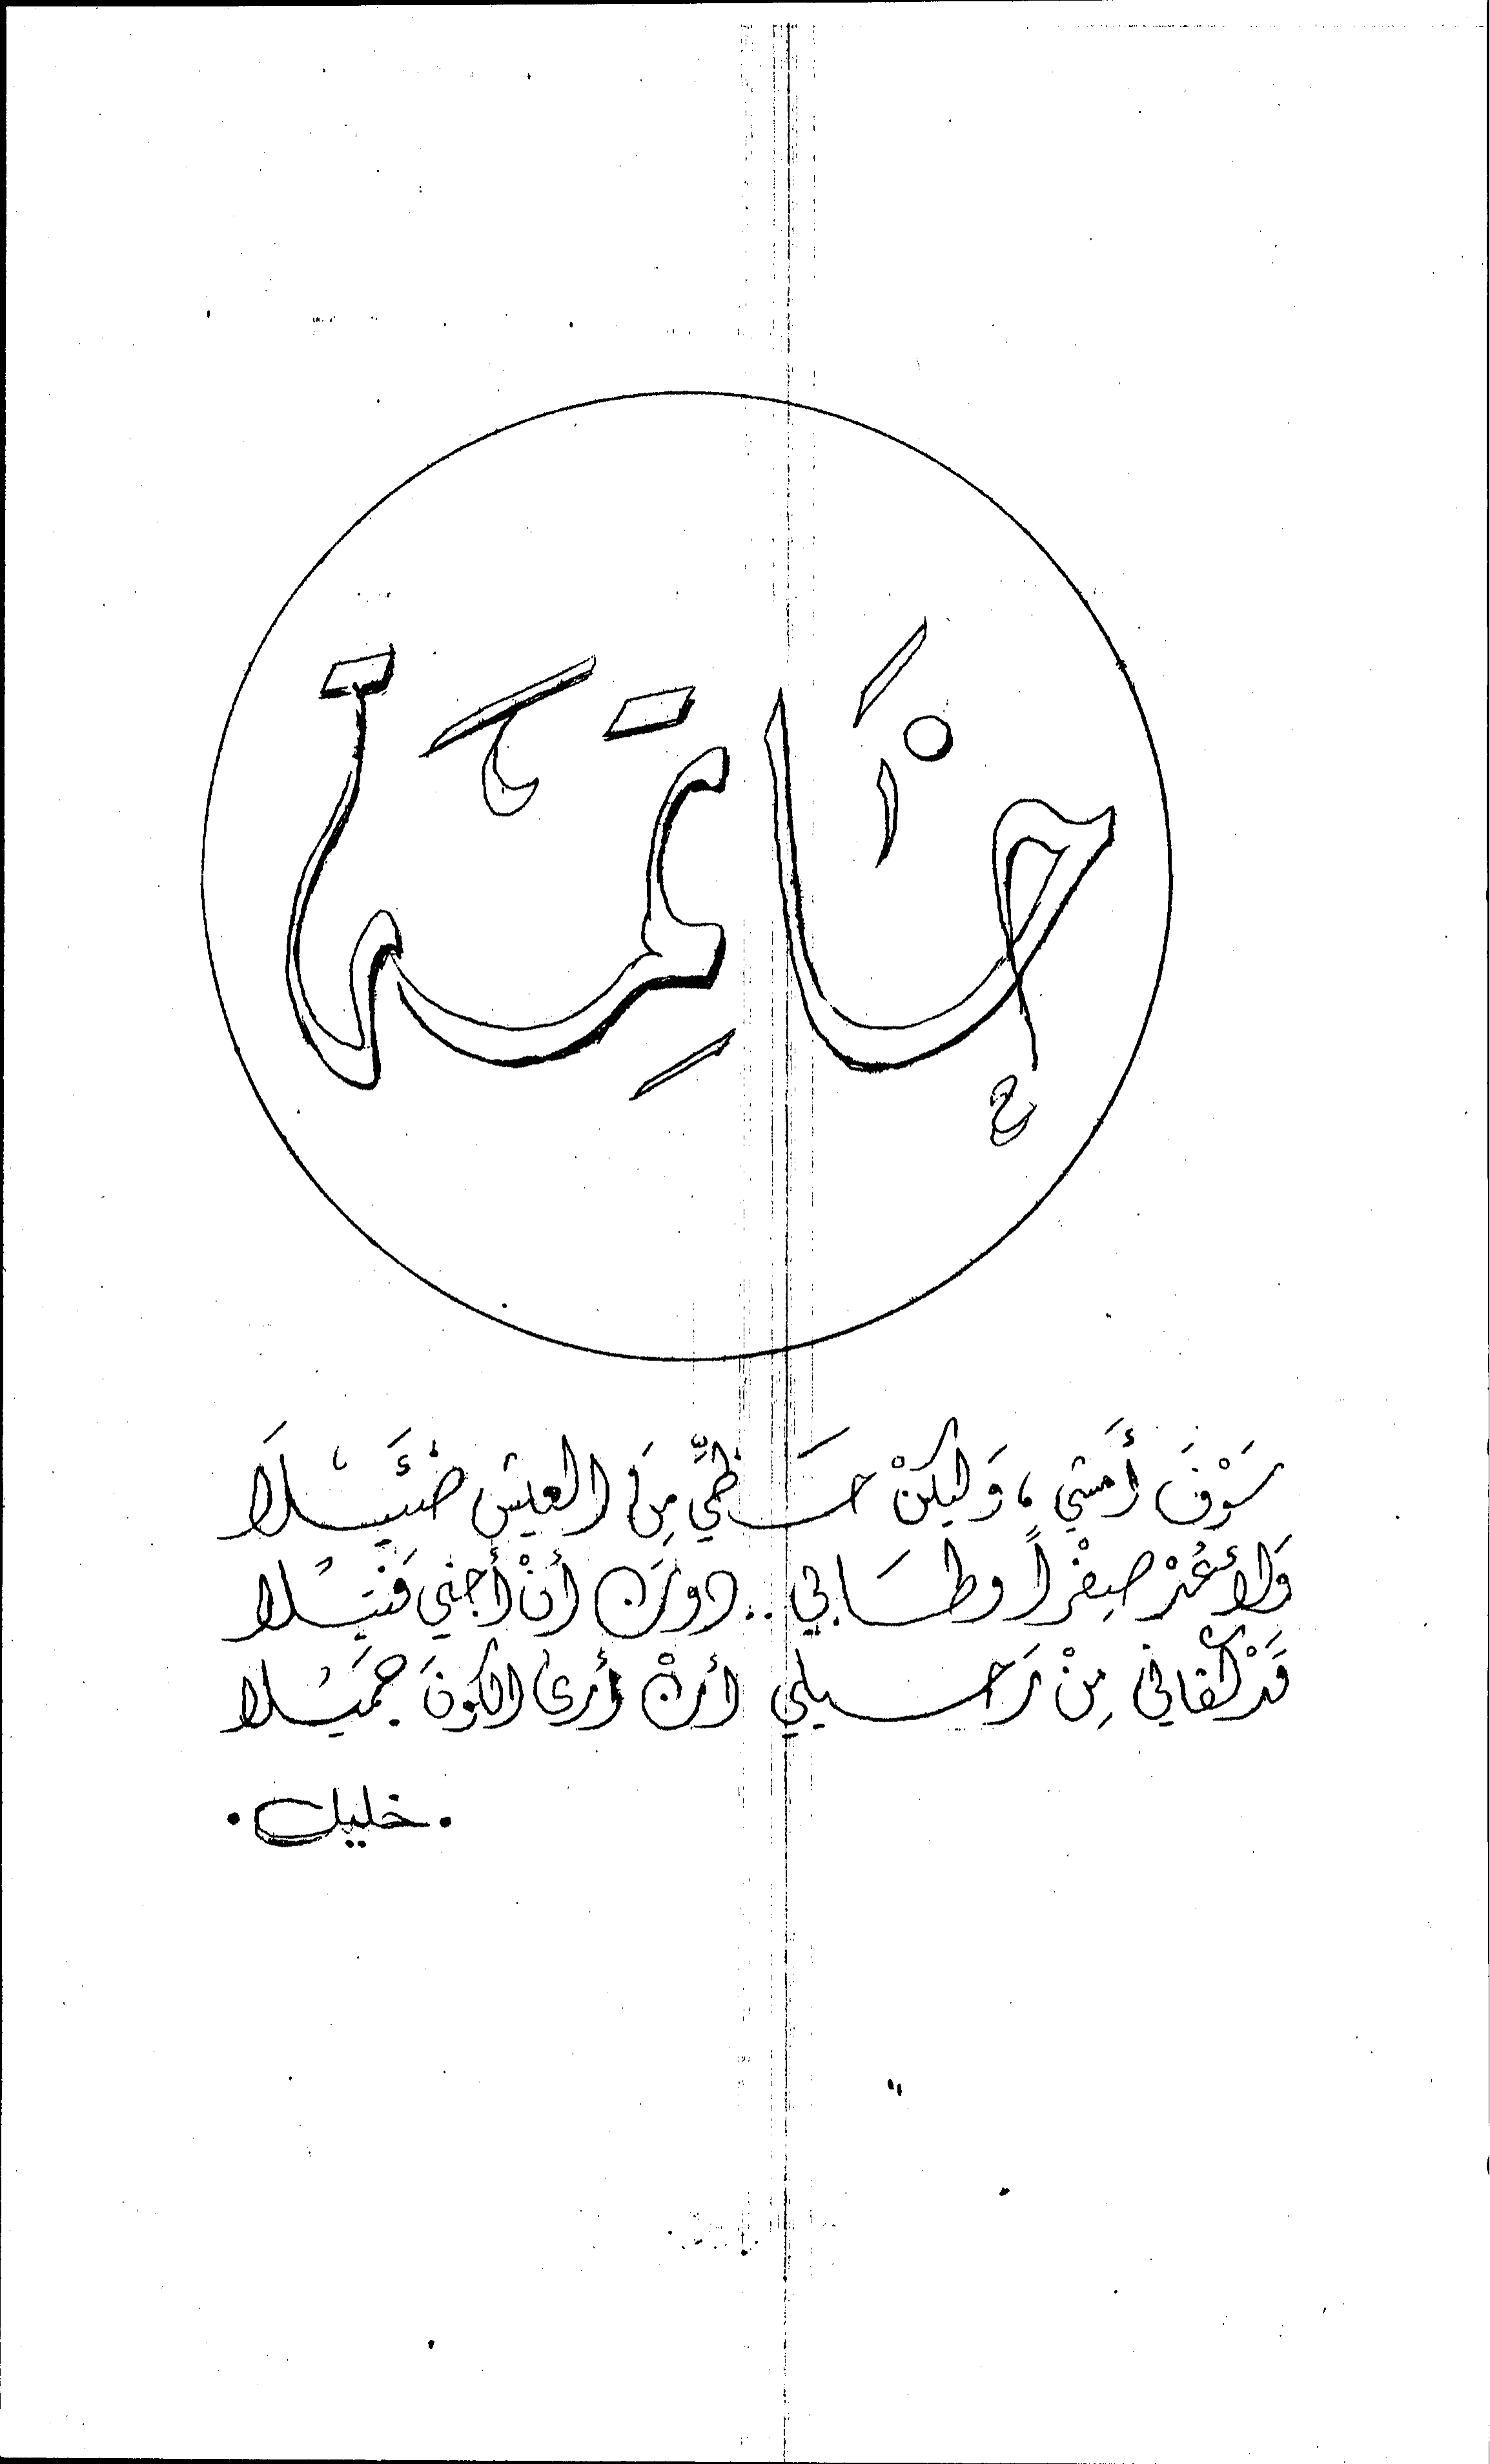 خَاتِمَة
سَوْفَ أَمشي، وَليكنْ حَظِّي مِنَ العيش ضَئَيْلاَ
وَلأَعُدْ صِفْراً وطَابي.. دونَ أنْ أجني فَتيْلا
قَدْ كفاني مِنْ رَحيلي أنْ أرى الكونَ جميَْلا
. خليل .